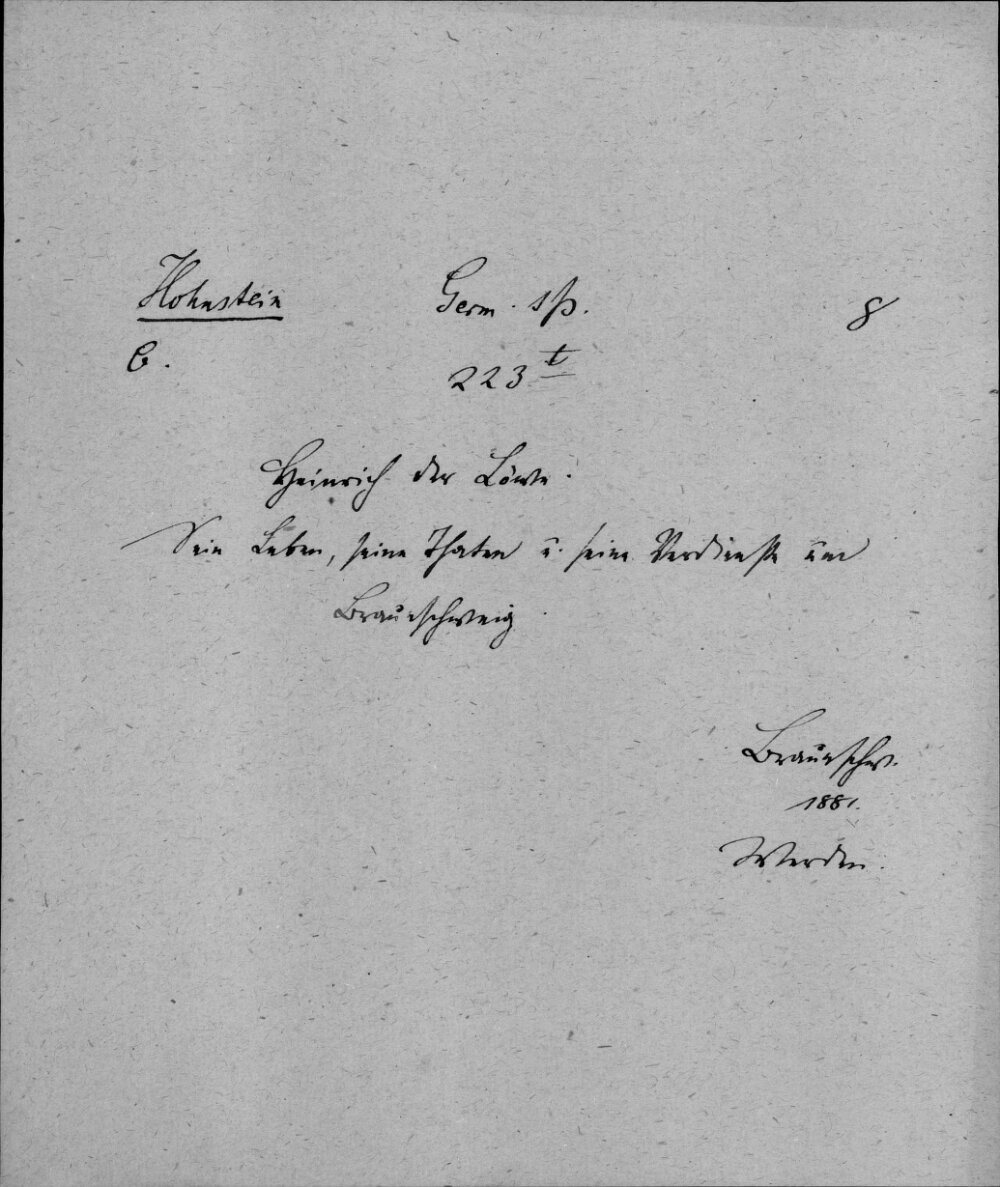 Hohnstein Germ. sp. 8
O. 223 t
Heinrich der Löwe.
Sein Leben, seine Thaten u. seine Verdienste um
Braunschweig
Braunschw.
1881.
Werden.